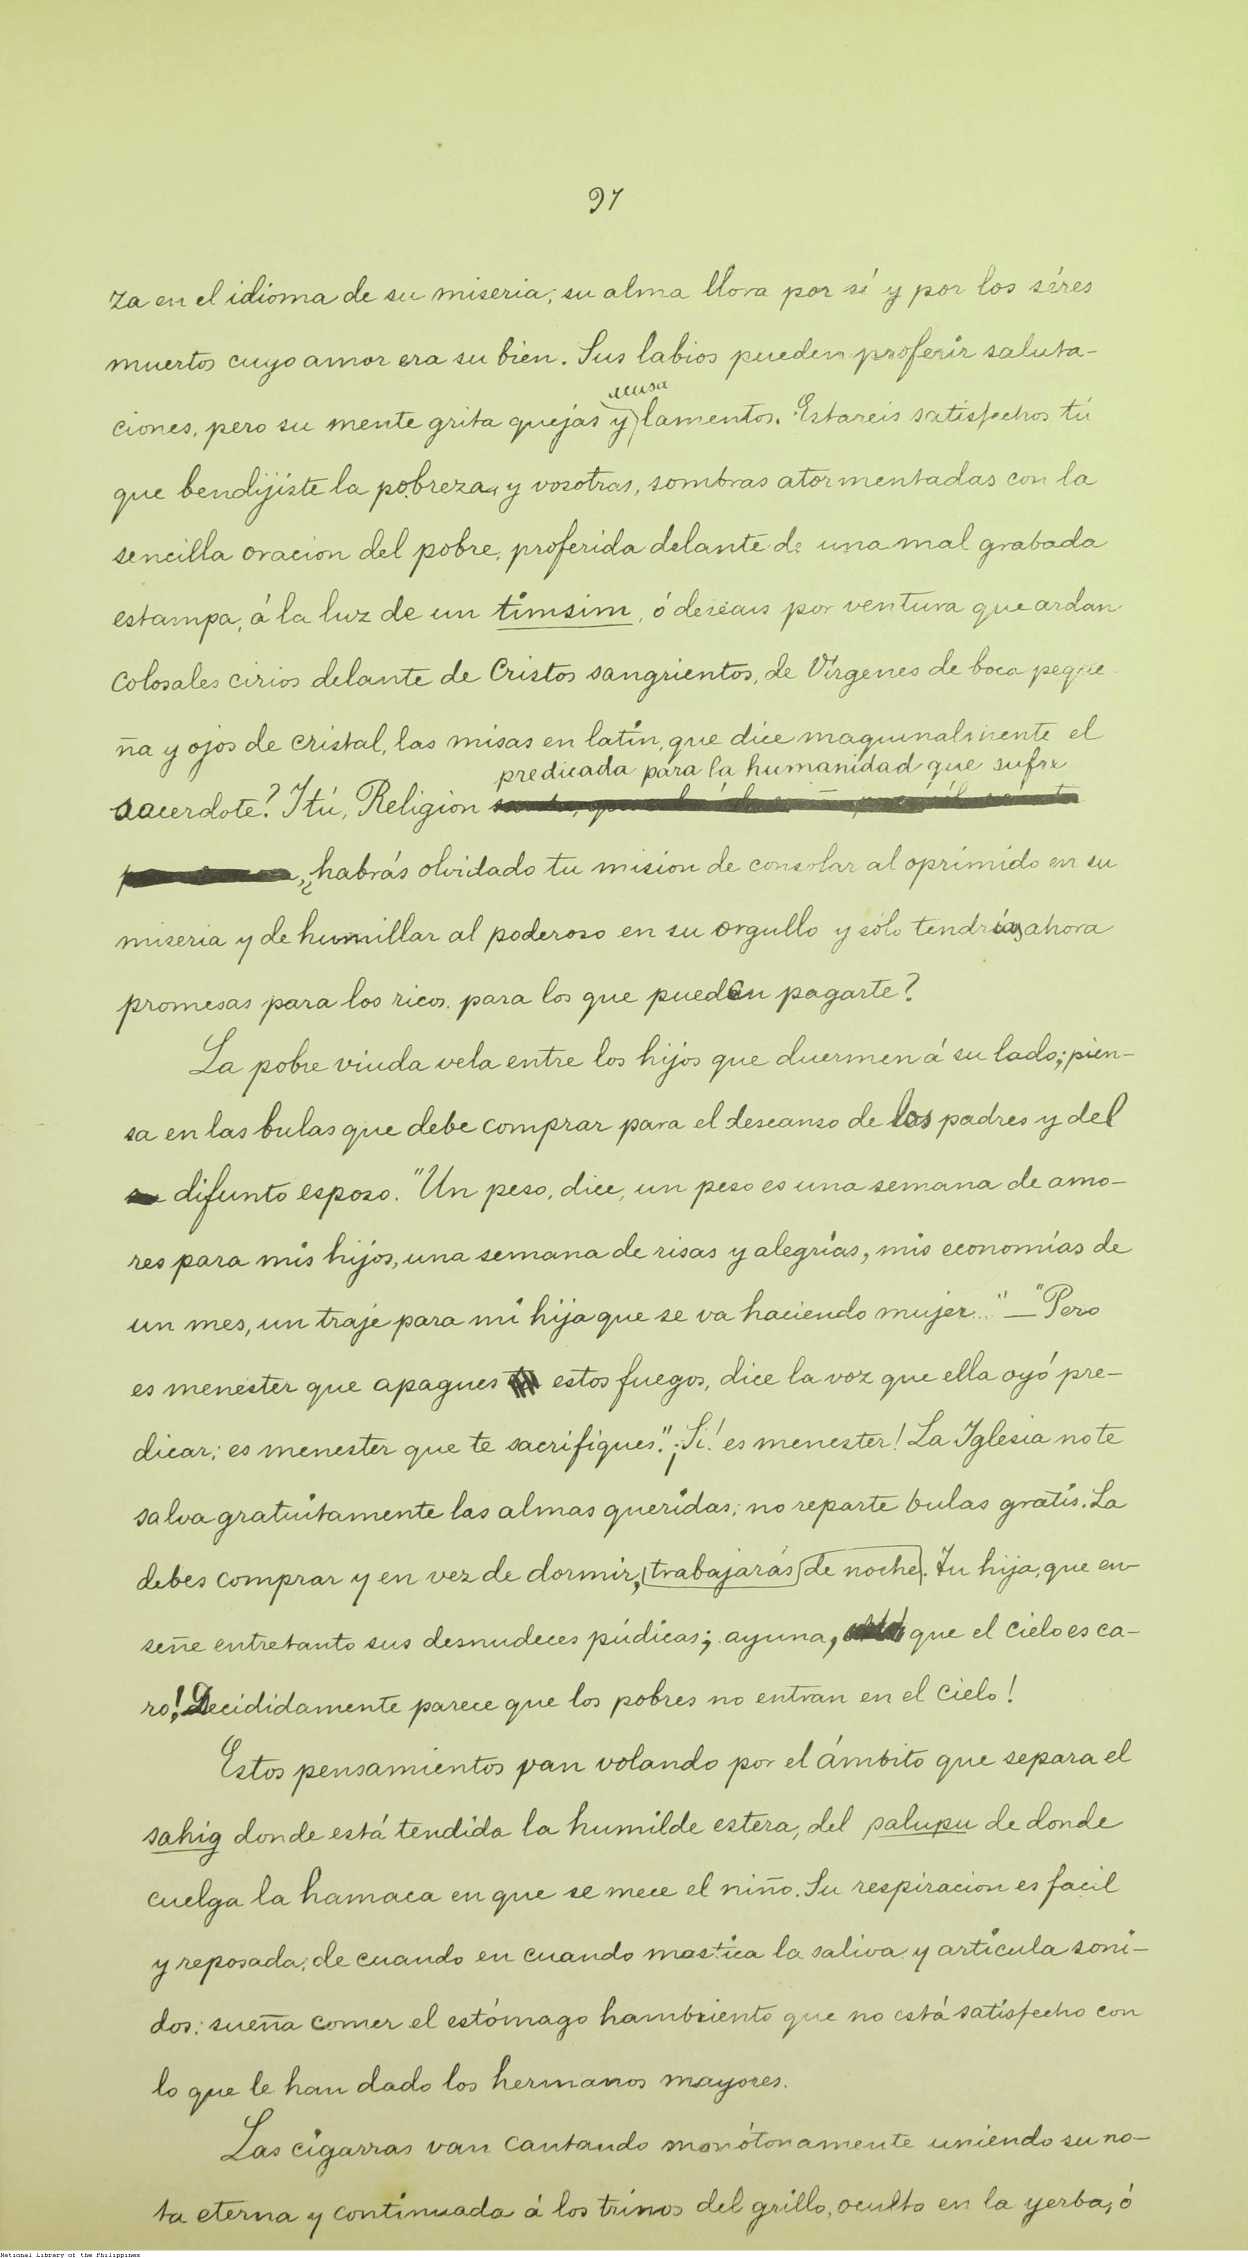 97
za en el idioma de su miseria; su alma llora por sí y por los séres
muertos cuyo amor era su bien. Sus labios pueden proferir saluta-
acusa
ciones, pero su mente grita quejas y lamentos. Estareis satisfechos tú
que bendijiste la pobreza, y vosotras, sombras atormentadas con la
sencilla oracion del pobre, proferida delante de una mal grabada
estampa, á la luz de un timsim, ó deseais por ventura que ardan
colosales cirios delante de Cristos sangrientos, de Vírgenes de boca peque
ña y ojos de cristal, las misas en latin, que dice maquinalmente el
predicada para la humanidad que sufre
sacerdote? I tú, Religion
, ¿habrás olvidado tu mision de consolar al oprimido en su
miseria y de humillar al poderoso en su orgullo y sólo tendrías ahora
promesas para los ricos, para los que pueden pagarte?
La pobre viuda vela entre los hijos que duermen á su lado; pien-
sa en las bulas que debe comprar para el descanso de los padres y del
difunto esposo. "Un peso, dice, un peso es una semana de amo-
res para mis hijos, una semana de risas y alegrías, mis economías de
un mes, un traje para mi hija que se va haciendo mujer..." — "Pero
es menester que apagues estos fuegos, dice la voz que ella oyó pre-
dicar; es menester que te sacrifiques." ¡Sí! es menester! La Iglesia no te
salva gratuitamente las almas queridas; no reparte bulas gratis. La
debes comprar y en vez de dormir, trabajarás de noche. Tu hija, que en-
señe entretanto sus desnudeces púdicas; ayuna, que el cielo es ca-
ro! Decididamente parece que los pobres no entran en el cielo!
Estos pensamientos van volando por el ámbito que separa el
sahig donde está tendida la humilde estera, del palupu de donde
cuelga la hamaca en que se mece el niño. Su respiracion es facil
y reposada; de cuando en cuando mastica la saliva y articula soni-
dos: sueña comer el estómago hambriento que no está satisfecho con
lo que le han dado los hermanos mayores.
Las cigarras van cantando monótonamente uniendo su no-
ta eterna y continuada á los trinos del grillo, oculto en la yerba, ó
National Library of the Philippines